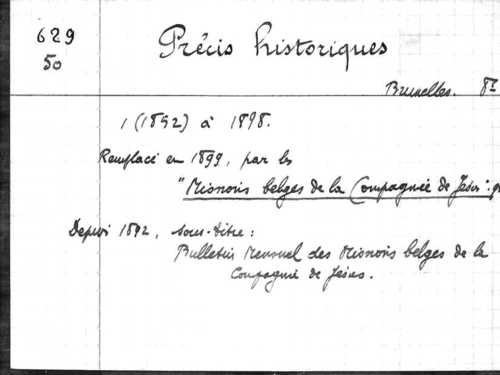 629
50
Précis historiques
Bruxelles. 8E
1 (1852) à 1898.
Remplacé en 1899, par les
"Missions belges de la Compagnie de Jésus":
Depuis 1892, sous-titre:
Bulletin Mensuel des Missions belges de la
Compagnie de Jésus.